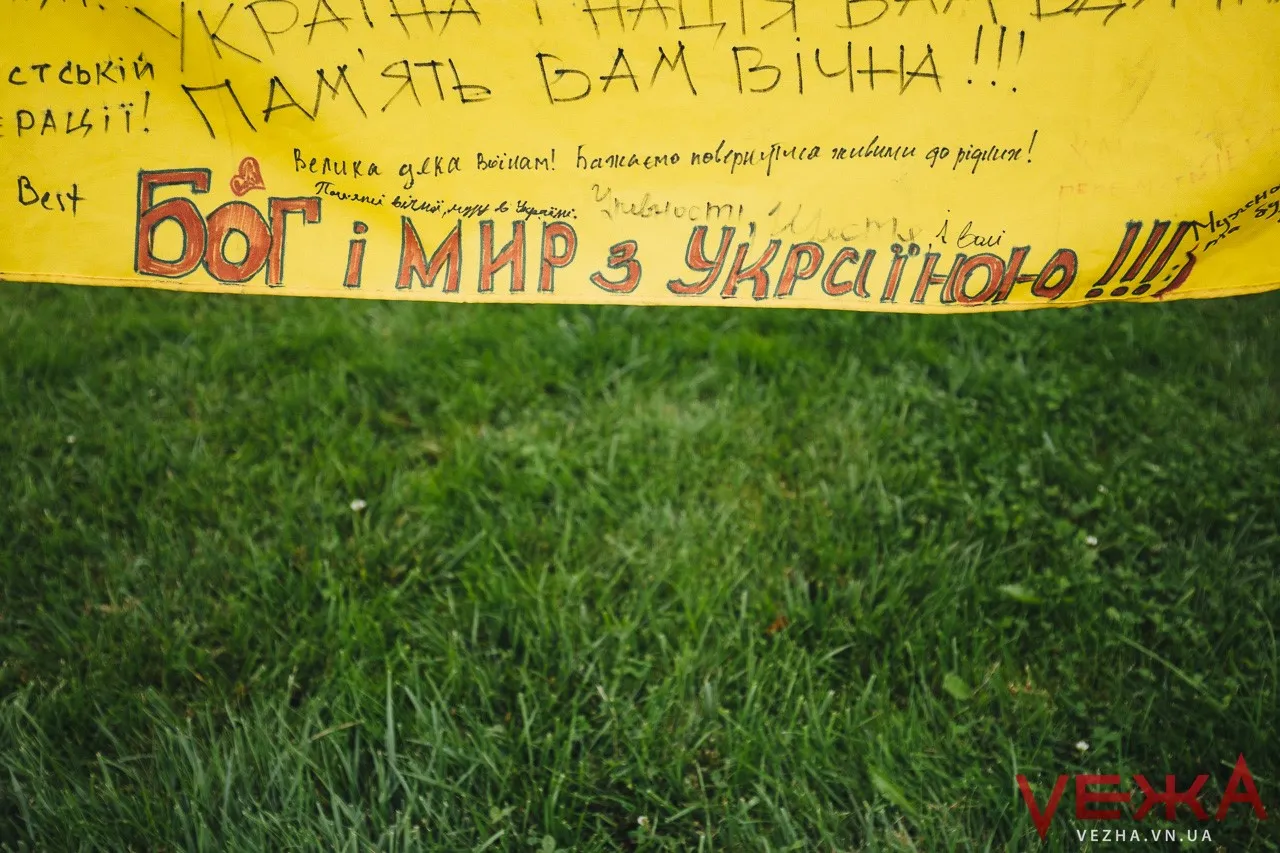 УКРАЇНА І НАЦІЯ ВАМ
ПАМ'ЯТЬ ВАМ ВІЧНА!!!
СТСЬКІЙ
РАЦІЇ!
Велика дяка Воїнам! Бажаємо повернутися живими до рідних!
Best
вічної, миру в Україні.
БОГ і МИР з УКРАЇНОЮ!!!
ВЕЖА
VEZHA.VN.UA